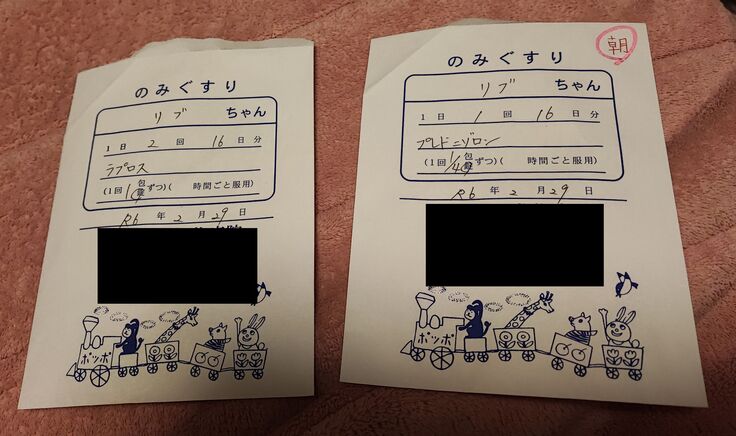 のみぐすり
リブ ちゃん
1日 2 回 16 日分
ラプロス
(1回 1 包 錠 ずつ)( 時間ごと服用)
R6 年 2 月 29 日
ポッポ
朝
のみぐすり
リブ ちゃん
1日 1 回 16 日分
プレドニゾロン
(1回 1/4 包 錠 ずつ)( 時間ごと服用)
R6 年 2 月 29 日
ポッポ